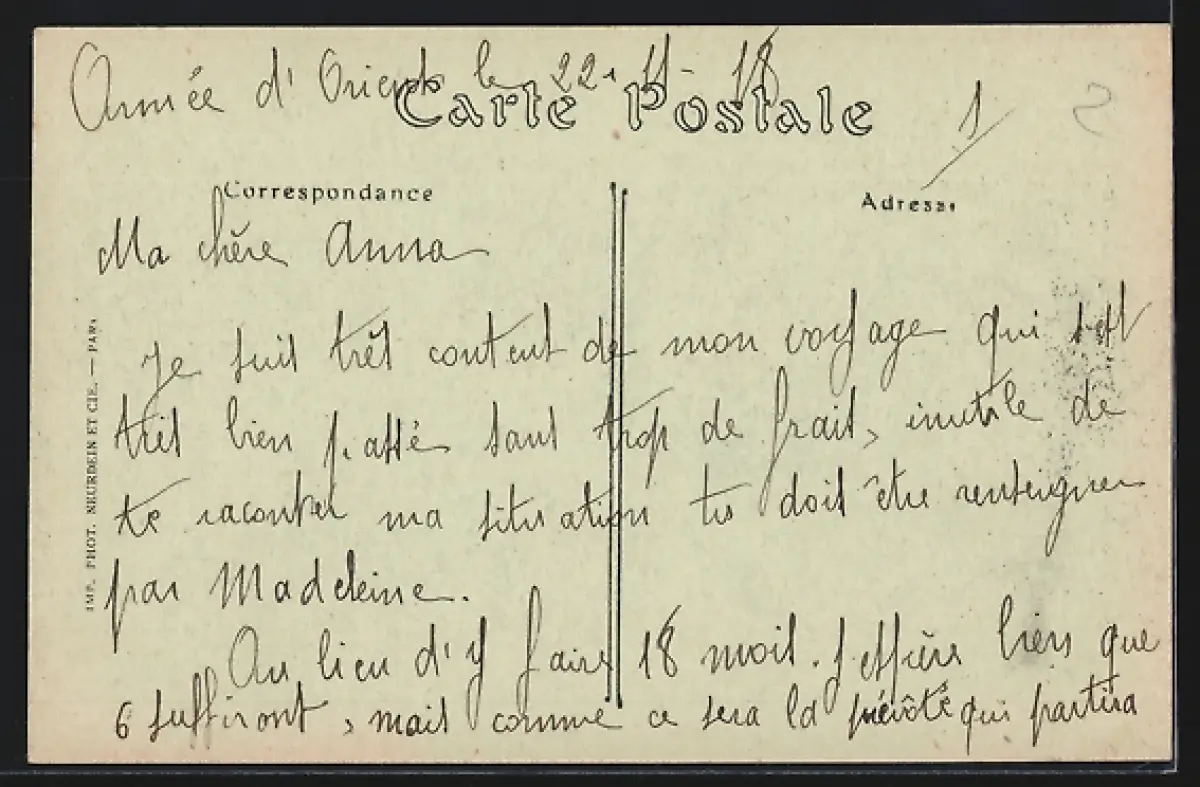 Armée d'Orient le 22-11-18
Carte Postale
1
2
Correspondance
Adresse
Ma chère Anna
Je suis très content de mon voyage qui s'est
très bien passé sans trop de frais, inutile de
te raconter ma situation tu dois être renseigner
par Madeleine.
Au lieu d'y faire 18 mois. J'espère bien que
6 suffiront, mais comme ce sera la prévôté qui partira
IMP. PHOT. NEURDEIN ET CIE. — PARIS